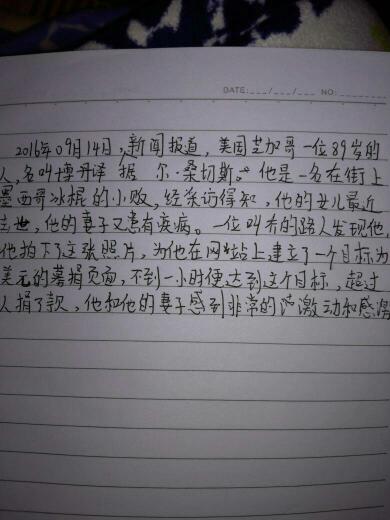 DATE:___/___/___ NO:
2016年09月14日,新闻报道,美国芝加哥一位89岁的
人,名叫 尔·桑切斯。他是一名在街上
墨西哥冰棍的小败,经采访得知,他的女儿最近
去世,他的妻子又患有疾病。一位叫 的路人发现他,
他拍下了这张照片,为他在网站上建立了一个目标为
美元的募捐页面,不到一小时便达到这个目标,超过
人捐了款,他和他的妻子感到非常的 激动和感激